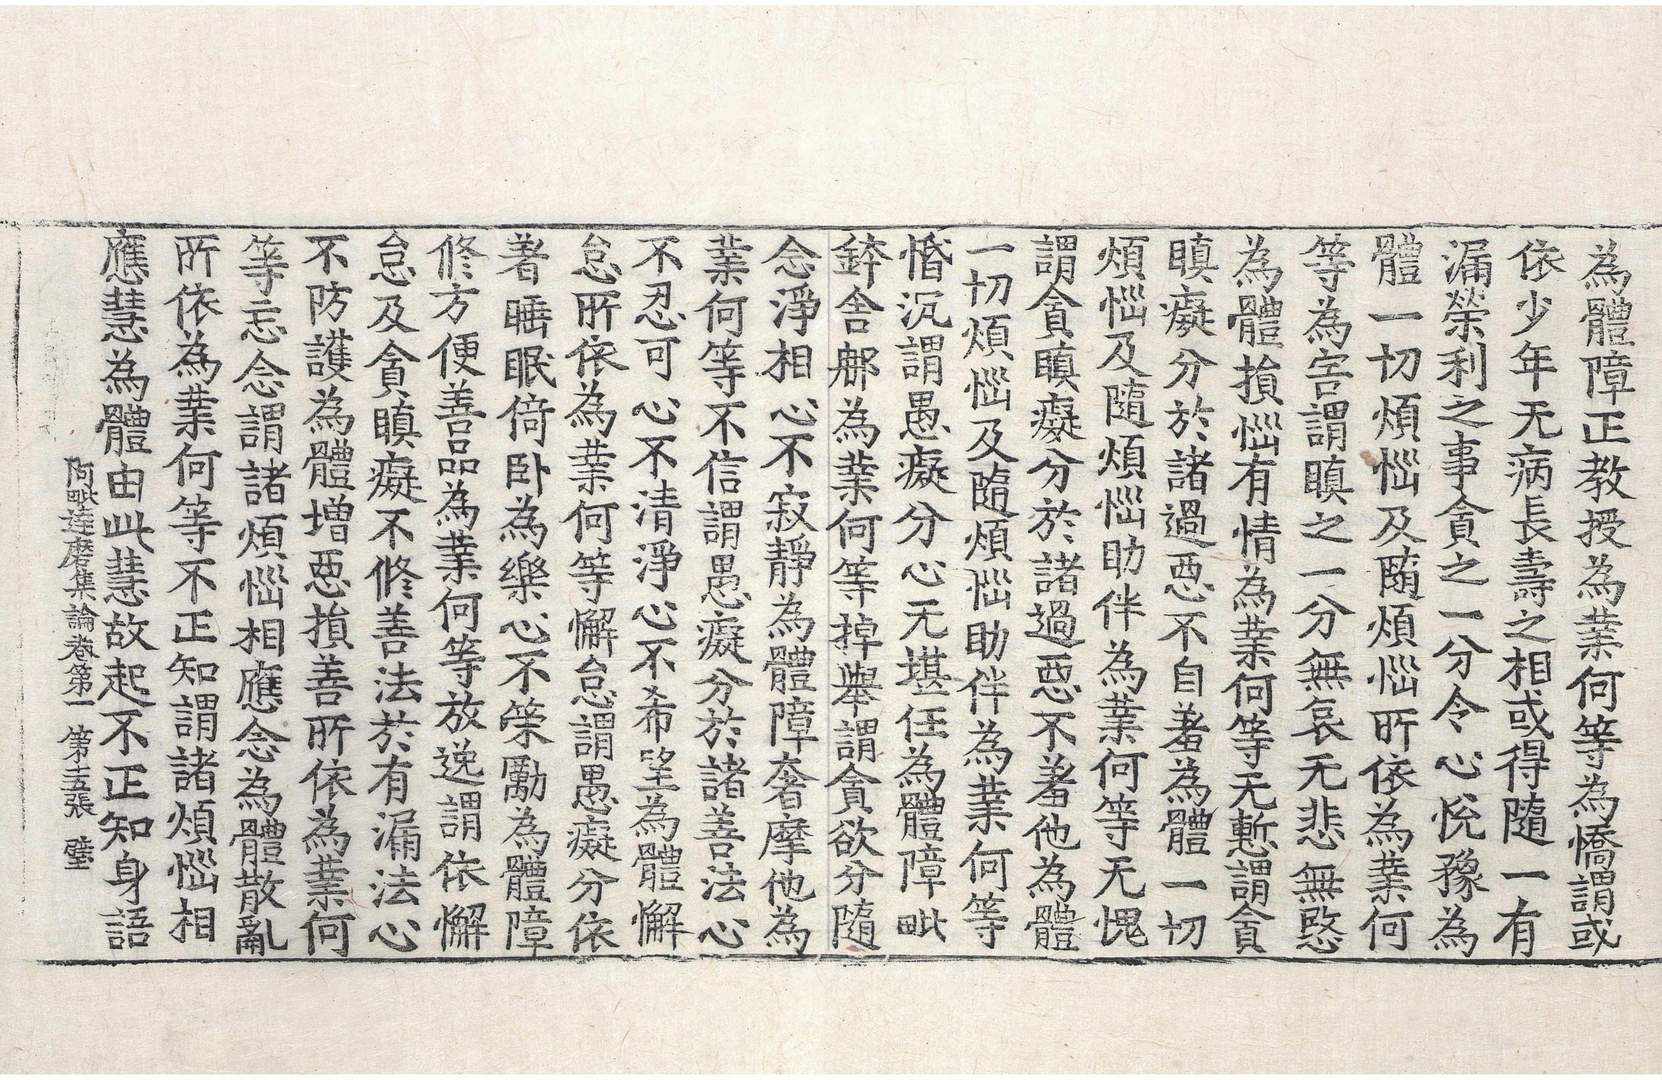 為體障正教授為業何等為憍謂或
依少年无病長壽之相或得隨一有
漏榮利之事貪之一分令心悅豫為
體一切煩惱及隨煩惱所依為業何
等為害謂瞋之一分無哀无悲無愍
為體損惱有情為業何等无慙謂貪
瞋癡分於諸過惡不自羞為體一切
煩惱及隨煩惱助伴為業何等无愧
謂貪瞋癡分於諸過惡不羞他為體
一切煩惱及隨煩惱助伴為業何等
惛沉謂愚癡分心无堪任為體障毗
鉢舍那為業何等掉舉謂貪欲分隨
念淨相心不寂靜為體障奢摩他為
業何等不信謂愚癡分於諸善法心
不忍可心不清淨心不希望為體懈
怠所依為業何等懈怠謂愚癡分依
著睡眠倚卧為樂心不策勵為體障
修方便善品為業何等放逸謂依懈
怠及貪瞋癡不修善法於有漏法心
不防護為體增惡損善所依為業何
等忘念謂諸煩惱相應念為體散亂
所依為業何等不正知謂諸煩惱相
應慧為體由此慧故起不正知身語
阿毗達磨集論卷第一 第十五張 璧